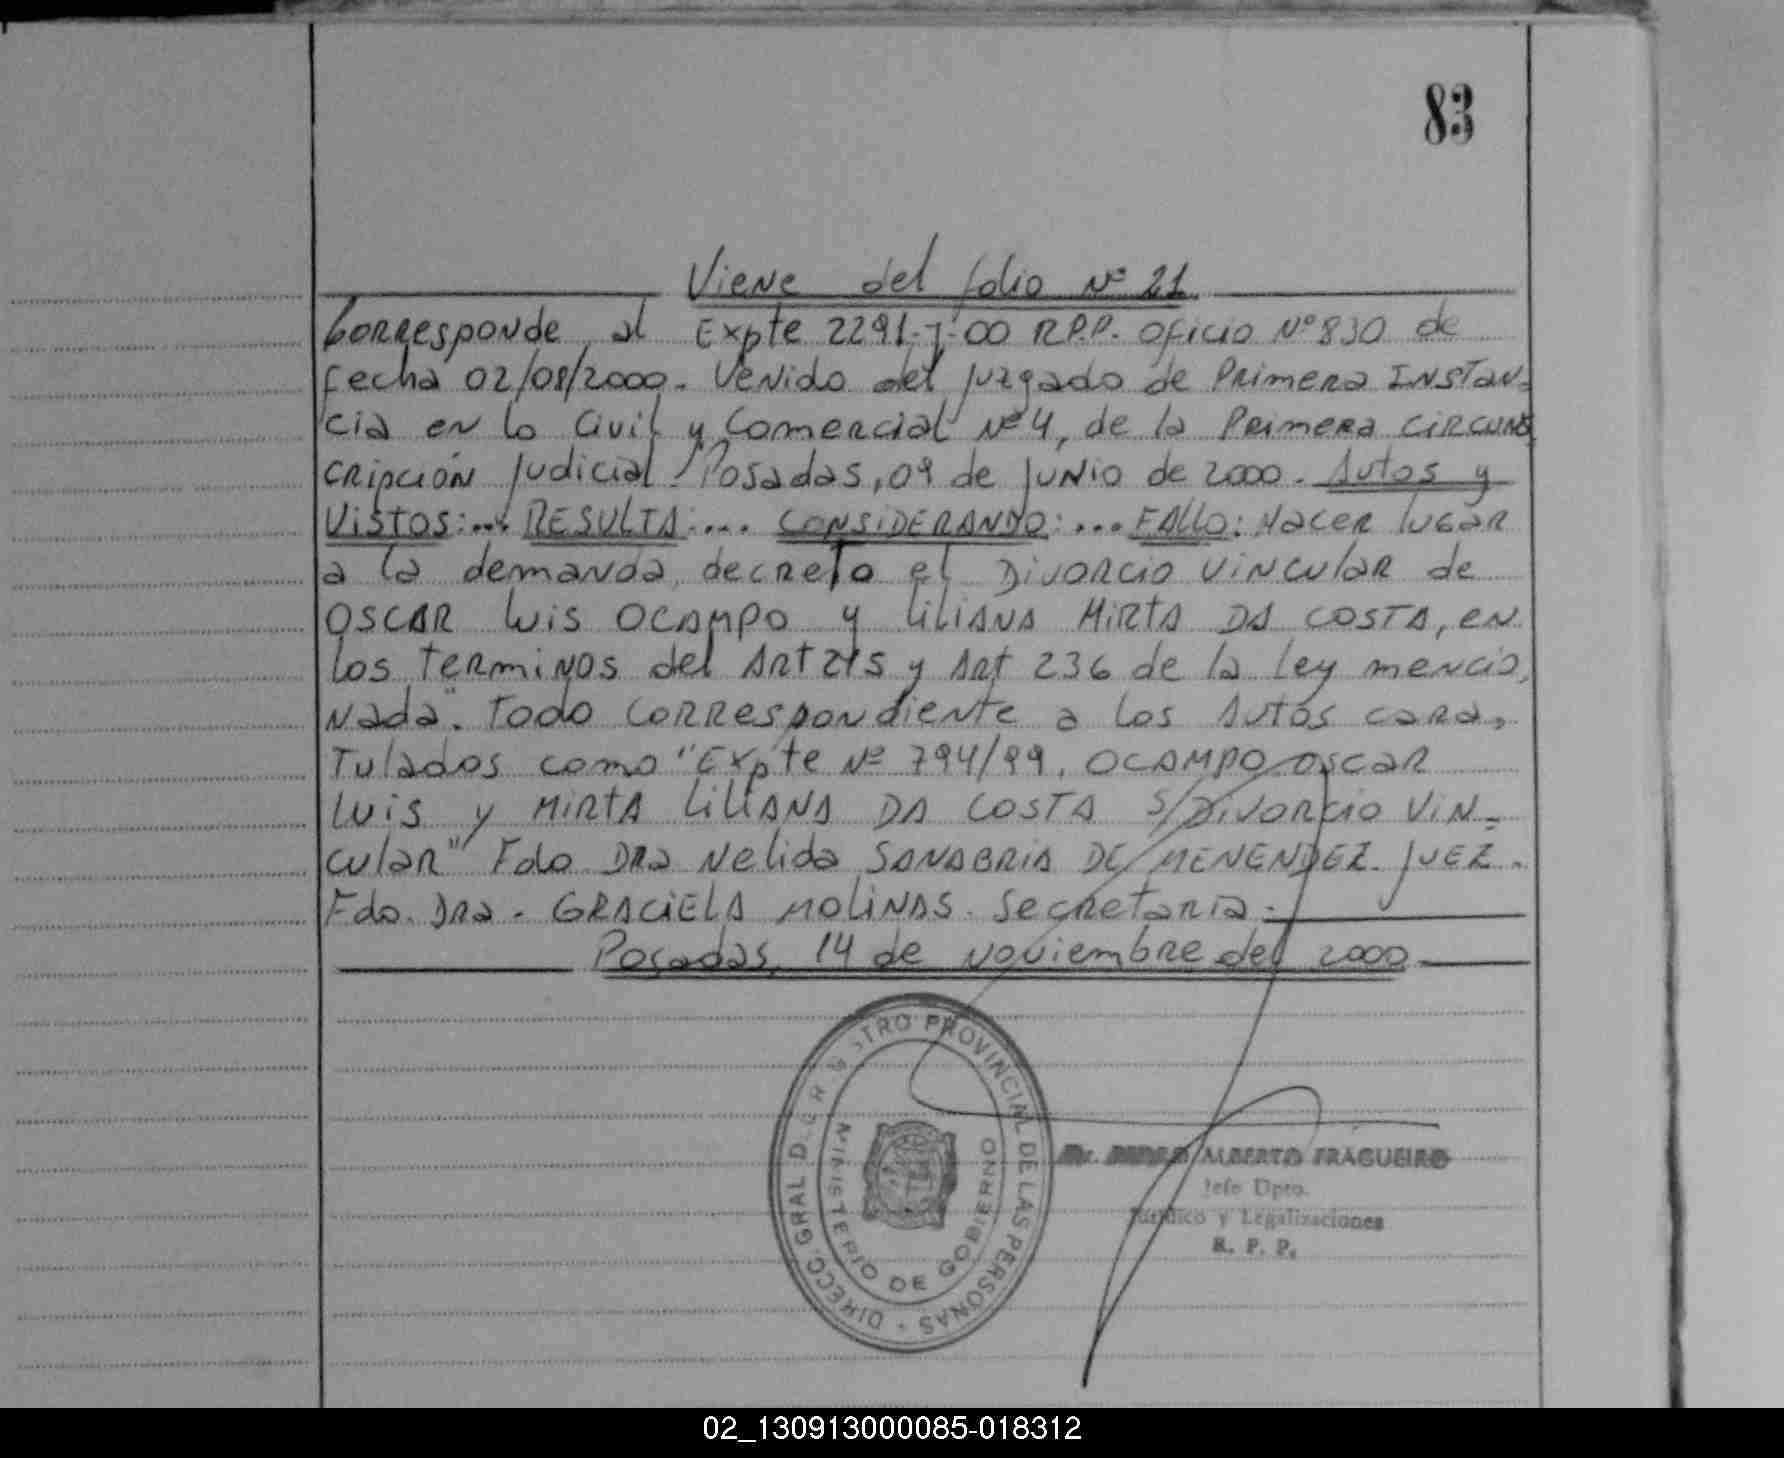 83
Viene del folio Nº 21
Corresponde al Expte 2291-J-00 R.P.P. Oficio Nº 830 de
fecha 02/08/2000. Venido del juzgado de Primera INSTAN-
cia en lo Civil y Comercial Nº 4, de la Primera CIRCUNS
cripción judicial. "Posadas, 09 de junio de 2000. Autos y
Vistos:... RESULTA:.... CONSIDERANDO:... FALLO: Hacer lugar
a la demanda, decreto el Divorcio Vincular de
OSCAR Luis OCAMPO y LILIANA MIRTA DA COSTA, en
los terminos del Art 215 y Art 236 de la Ley mencio,
nada". Todo correspondiente a los Autos cara,
Tulados como "Expte Nº 794/99, OCAMPO OSCAR
Luis y MIRTA LILIANA DA COSTA S/Divorcio VIN=
cular" Fdo. DRa Nelida SANABRIA DE MENENDEZ. JUEZ.
Fdo. DRa. GRACIELA MOLINAS. Secretaria.
Posadas, 14 de noviembre del 2000
DIRECC. GRAL. DEL REGISTRO PROVINCIAL DE LAS PERSONAS -
MINISTERIO DE GOBIERNO
Dr. ALBERTO FRAGUEIRO
Jefe Dpto.
Jurídico y Legalizaciones
R. P. P.
02_130913000085-018312